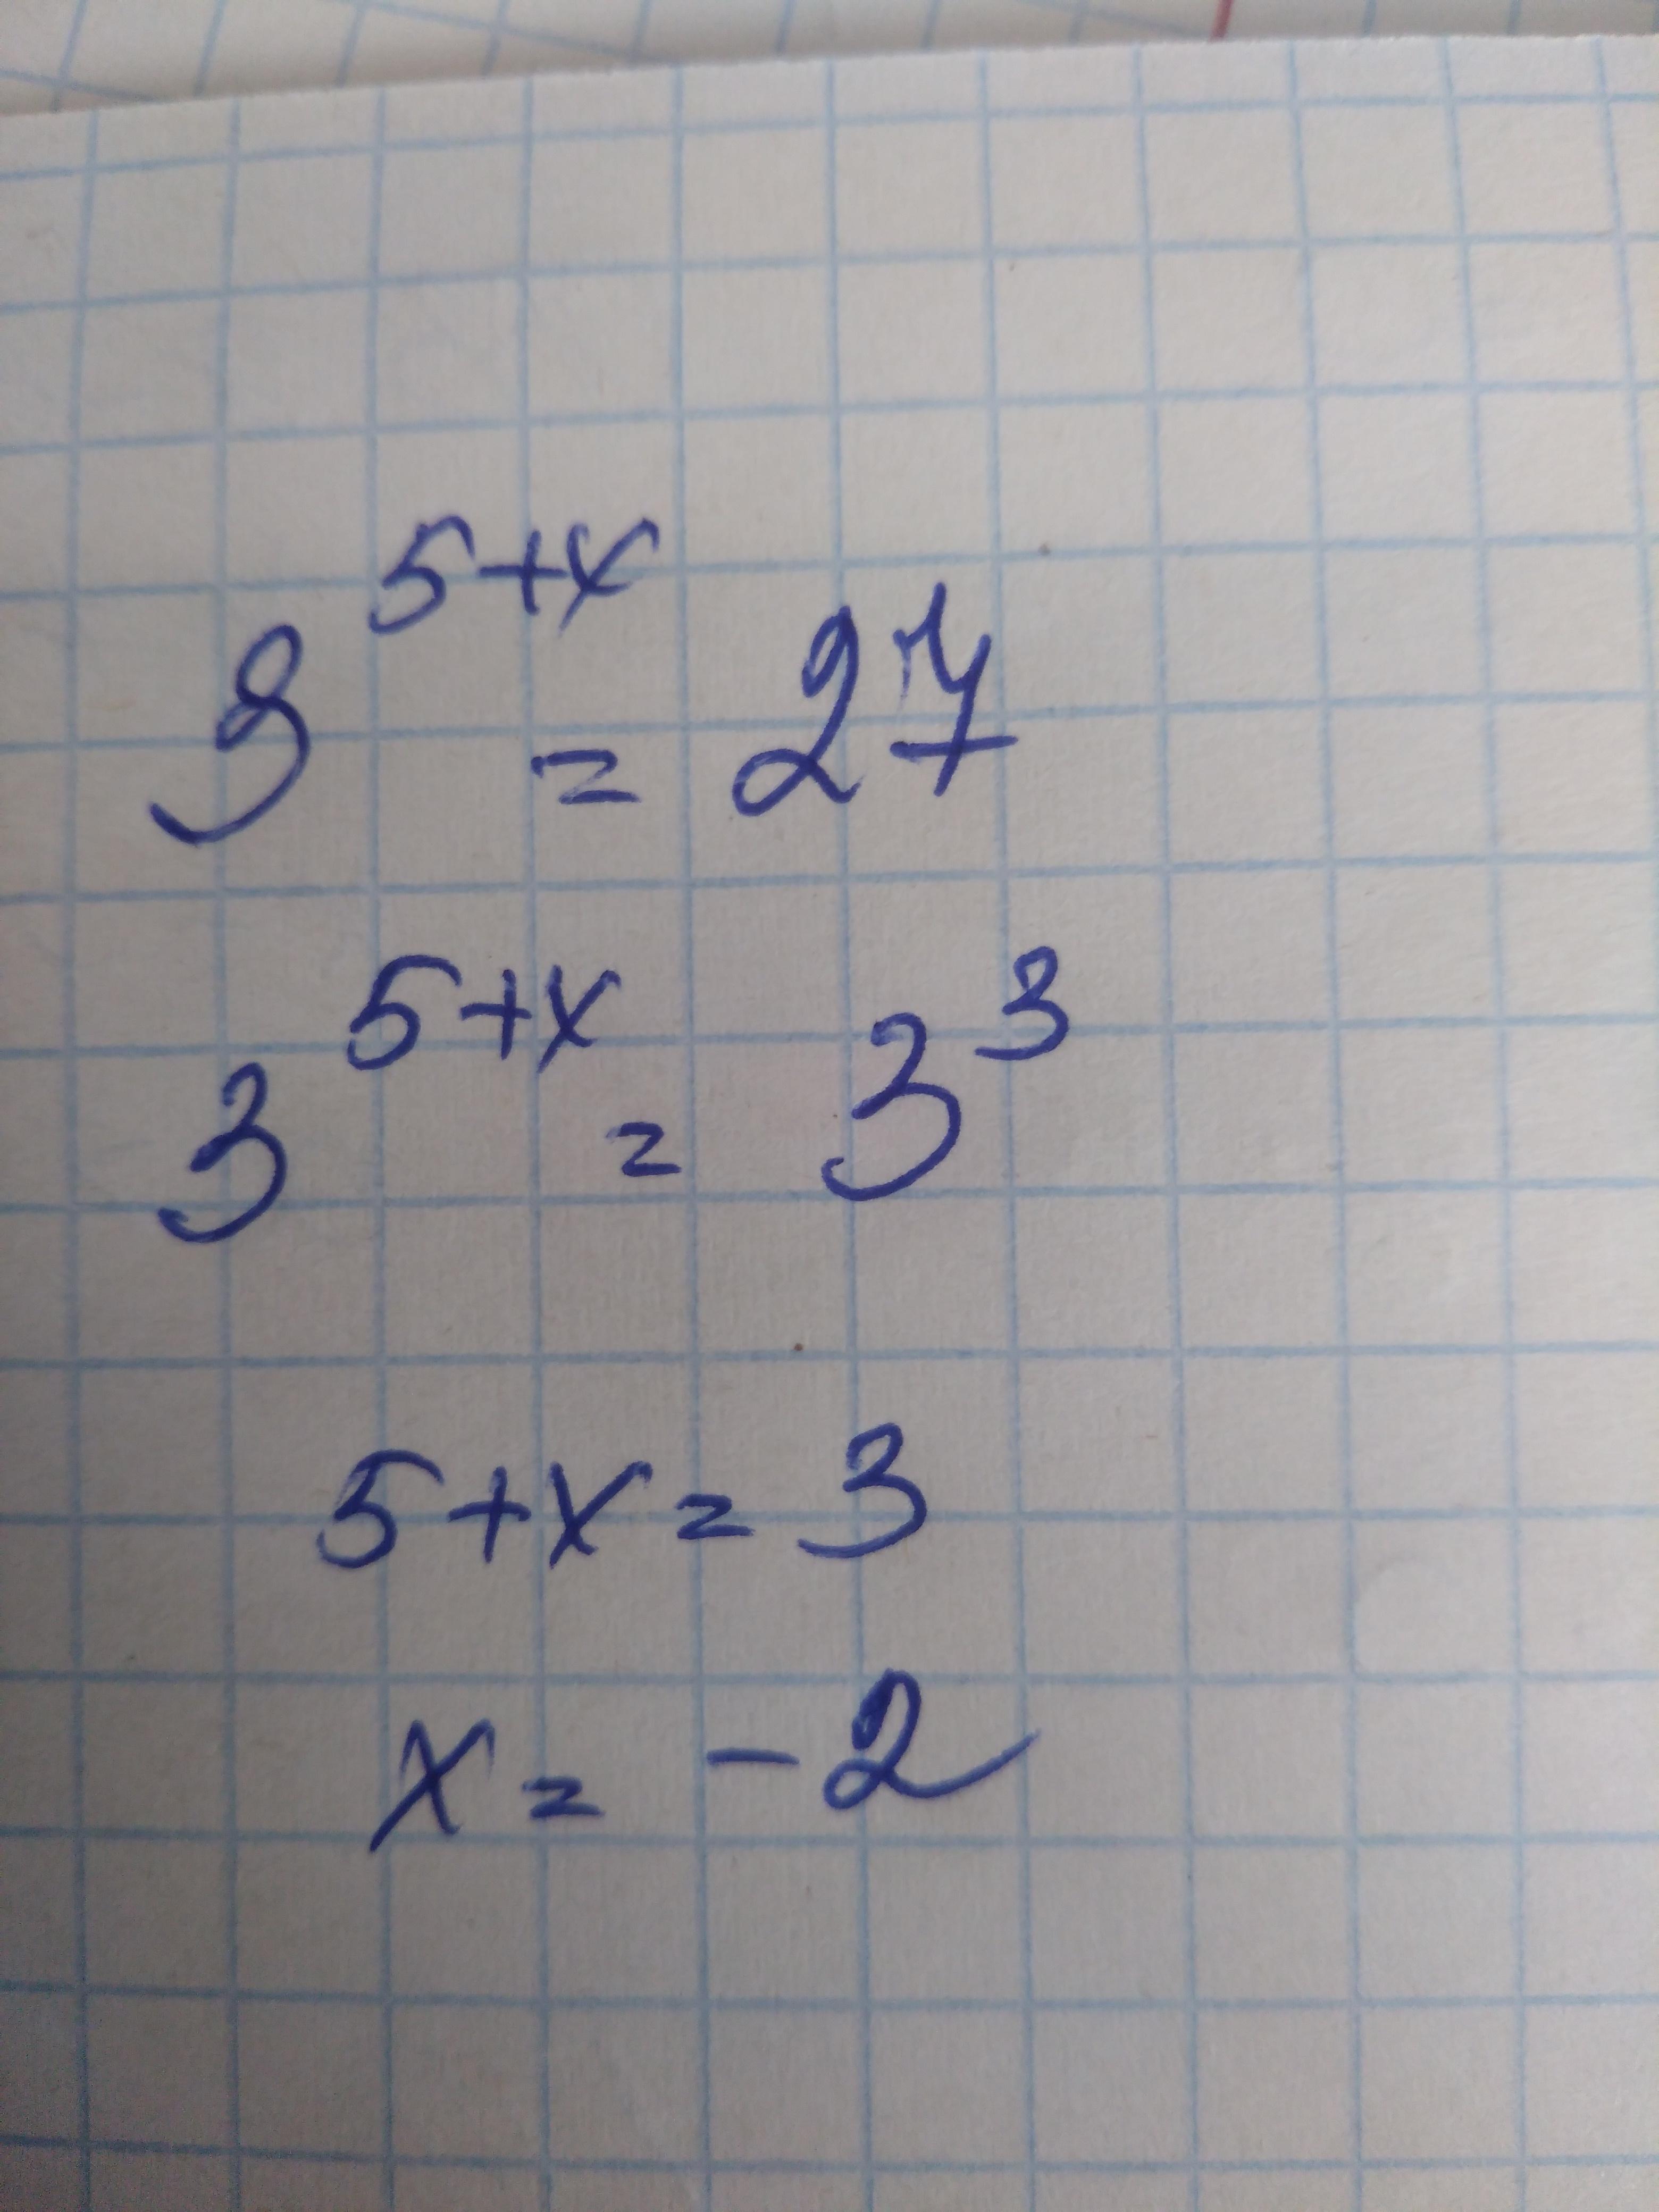 3^{5+x} = 27
3^{5+x} = 3^3
5+x=3
x=-2